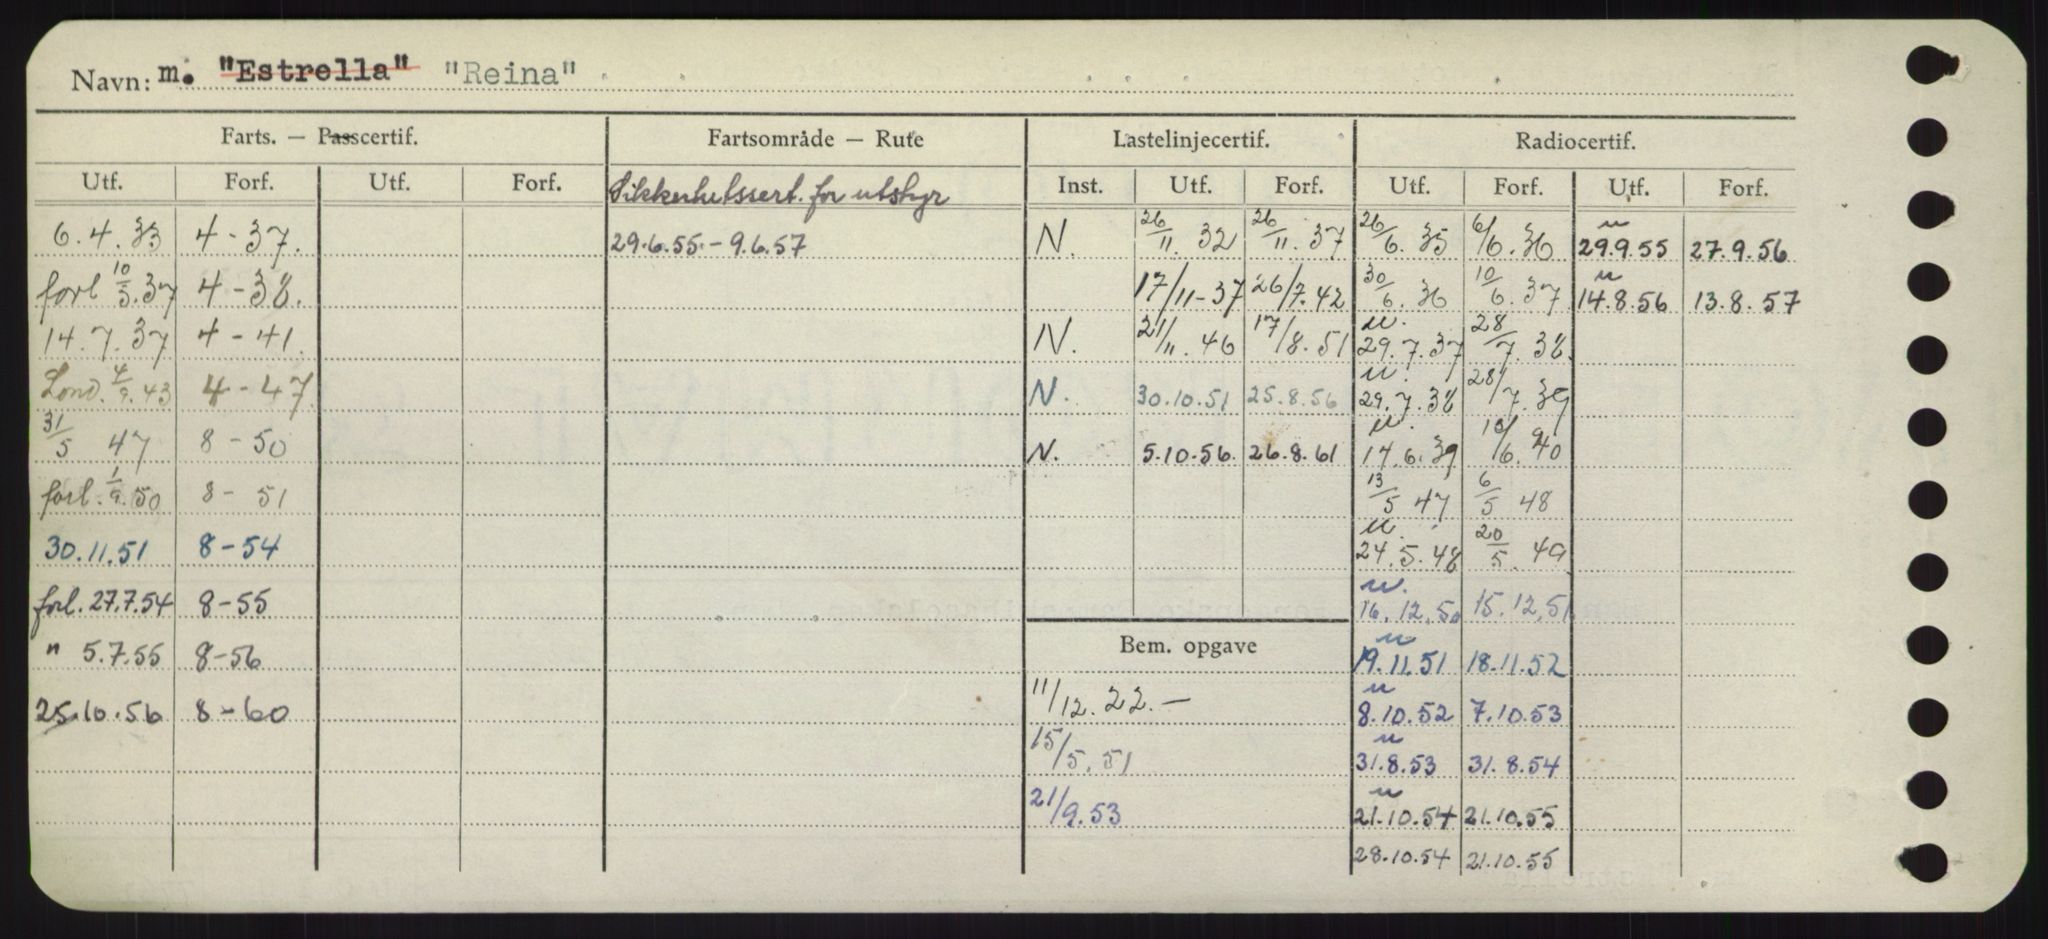 Navn: m. "Estrella" "Reina"
Farts. — Passcertif. Fartsområde — Rute Lastelinjecertif. Radiocertif.
Utf. Forf. Utf. Forf. Sikkerhetssert. for utstyr Inst. Utf. Forf. Utf. Forf. Utf. Forf.
6.4.33 4-37. 29.6.55.-9.6.57 N. 26/11. 32 26/11. 37 26/6. 35 6/6. 36 u 29.9.55 27.9.56
forl 10/5.37 4-38. 17/11-37 26/7.42 30/6. 36 10/6. 37 u 14.8.56 13.8.57
14.7.37 4-41. N. 21/11. 46 17/8.51 u. 29.7.37 28/7. 38.
Lond. 4/9.43 4-47 N. 30.10.51 25.8.56 u. 29.7.38 28/7.39
31/5 47 8-50 N. 5.10.56. 26.8.61 u. 14.6.39 /6.40
forl. 1/9.50 8-51 13/5 47 6/5 48
30.11.51 8-54 u. 24.5.48 20/5. 49
forl. 27.7.54 8-55 u. 16.12.50 15.12.51
" 5.7.55 8-56 Bem. opgave u 19.11.51 18.11.52
25.10.56 8-60 11/12.22.— u 8.10.52 7.10.53
15/5.51 u 31.8.53 31.8.54
21/9.53 u 21.10.54 21.10.55
28.10.54 21.10.55